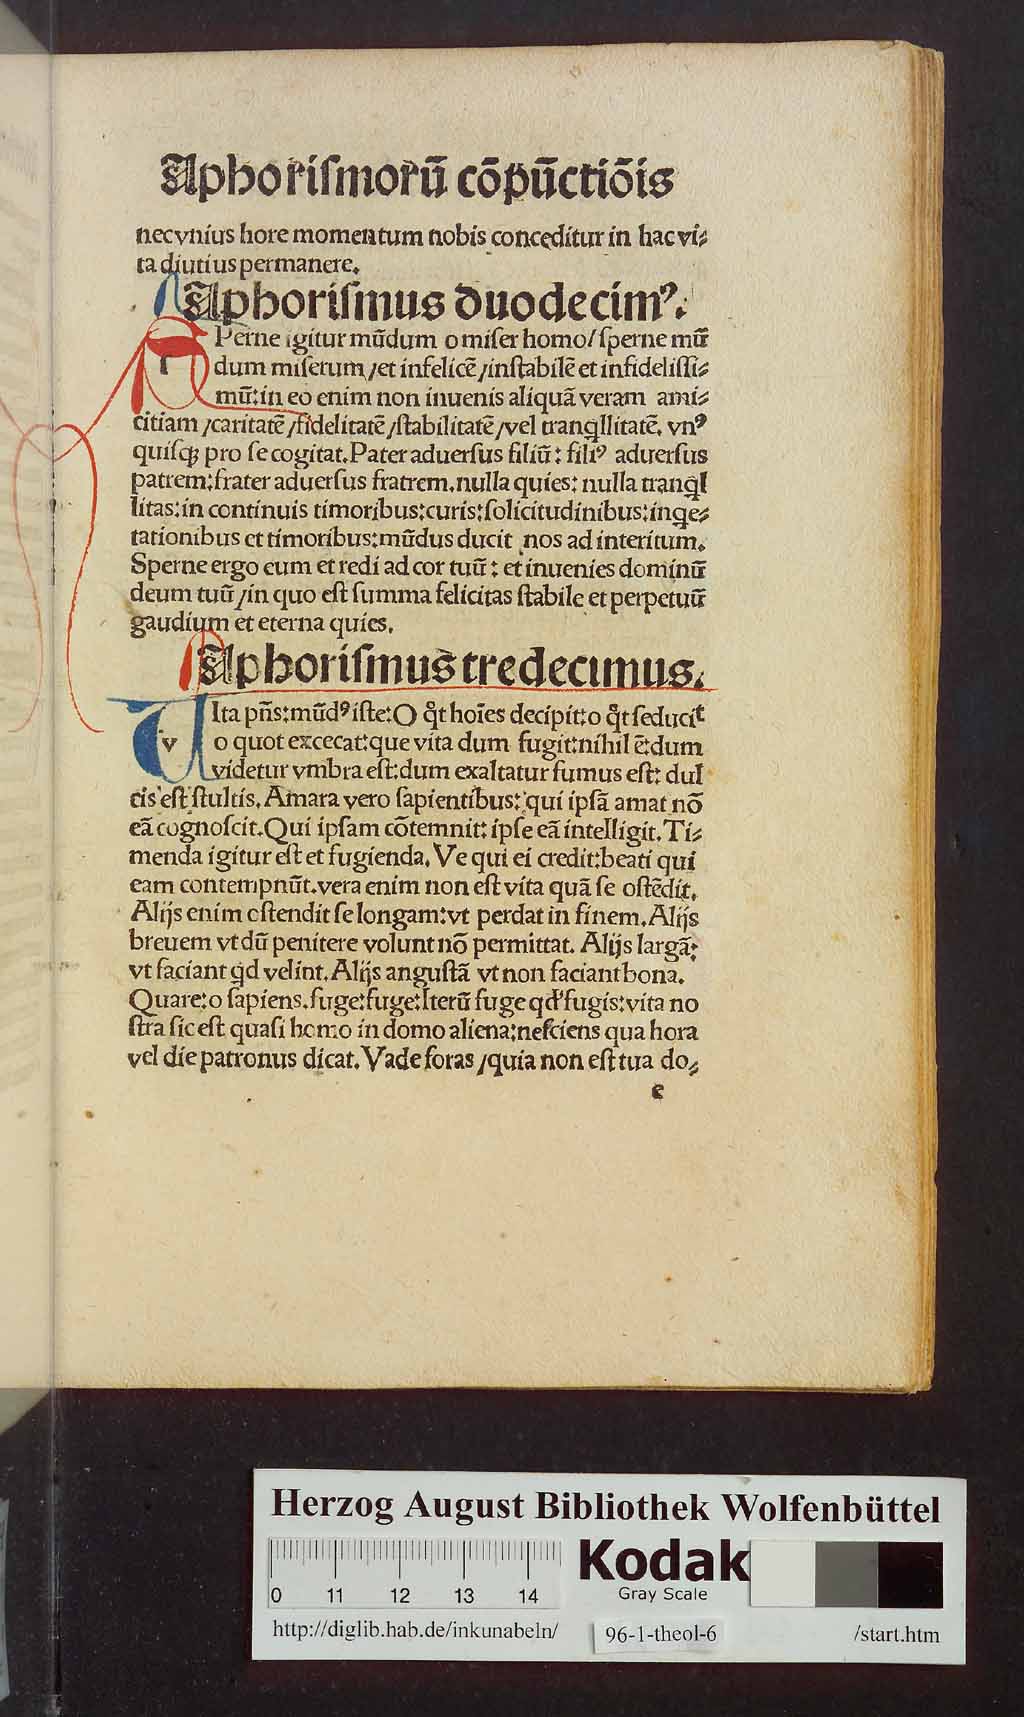 Aphoriſmorū cōpūctiōis
nec vnius hore momentum nobis conceditur in hac vi⸗
ta diutius permanere.
Aphoriſmus duodecimꝰ.
SPerne igitur mūdum o miſer homo/ ſperne mū
dum miſerum /et infelicē /inſtabilē et infideliſſi⸗
mū: in eo enim non inuenis aliquā veram ami⸗
citiam /caritatē /fidelitatē /ſtabilitatē /vel tranqͥllitatē. vnꝰ
quiſqꝫ pro ſe cogitat. Pater aduerſus filiū: filiꝰ aduerſus
patrem: frater aduerſus fratrem. nulla quies: nulla tranqͥl
litas: in continuis timoribus: curis: ſolicitudinibus: inqͥe⸗
tationibus et timoribus: mūdus ducit nos ad interitum.
Sperne ergo eum et redi ad cor tuū: et inuenies dominū
deum tuū /in quo eſt ſumma felicitas ſtabile et perpetuū
gaudium et eterna quies.
Aphoriſmus tredecimus.
v
VIta pn̄s: mūdꝰ iſte: O qͦt hoīes decipit: o qͦt ſeducit
o quot excecat: que vita dum fugit: nihil ē: dum
videtur vmbra eſt: dum exaltatur fumus eſt: dul
cis eſt ſtultis. Amara vero ſapientibus: qui ipſā amat nō
eā cognoſcit. Qui ipſam cōtemnit: ipſe eā intelligit. Ti⸗
menda igitur eſt et fugienda. Ve qui ei credit: beati qui
eam contempnūt. vera enim non eſt vita quā ſe oſtēdit.
Alijs enim oſtendit ſe longam: vt perdat in finem. Alijs
breuem vt dū penitere volunt nō permittat. Alijs largā:
vt faciant qͥd velint. Alijs anguſtā vt non faciant bona.
Quare: o ſapiens. fuge: fuge: Iterū fuge qd' fugis: vita no
ſtra ſic eſt quaſi homo in domo aliena: neſciens qua hora
vel die patronus dicat. Vade foras /quia non eſt tua do⸗
e
Herzog August Bibliothek Wolfenbüttel
0 11 12 13 14
Kodak
Gray Scale
http://diglib.hab.de/inkunabeln/ 96-1-theol-6 /start.htm